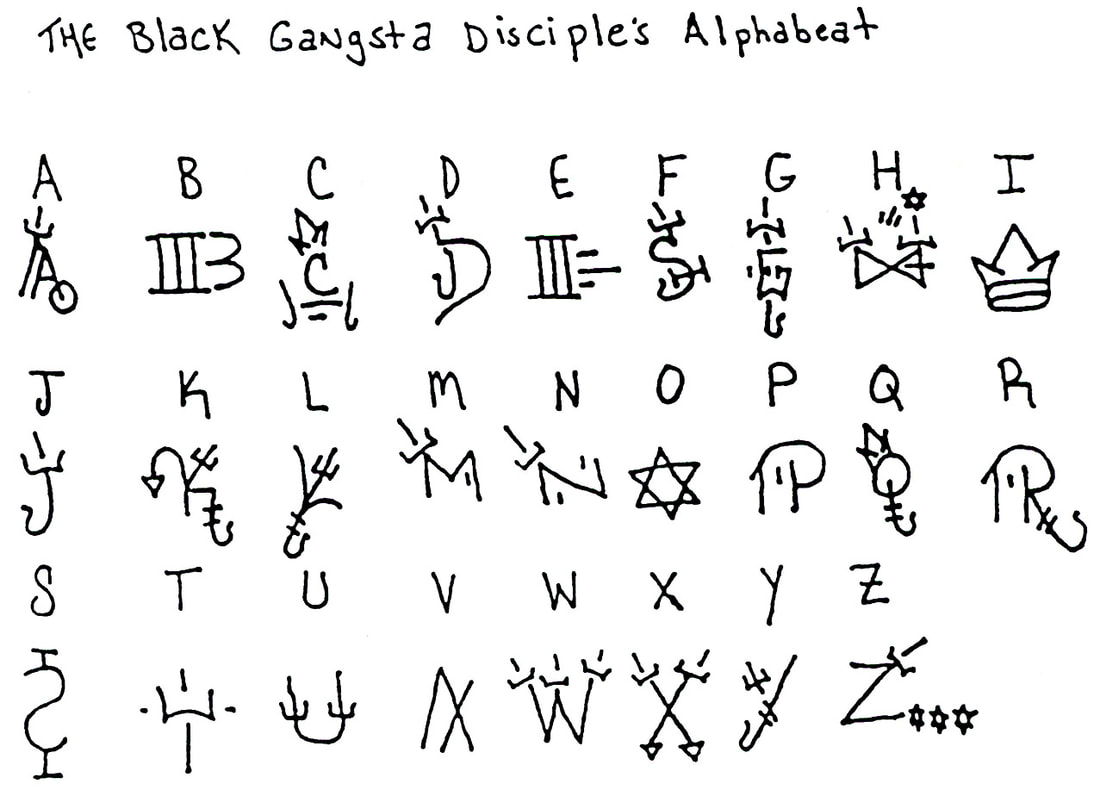 THE Black Gangsta Disciple's Alphabeat
A B C D E F G H I
J K L M N O P Q R
S T U V W X Y Z